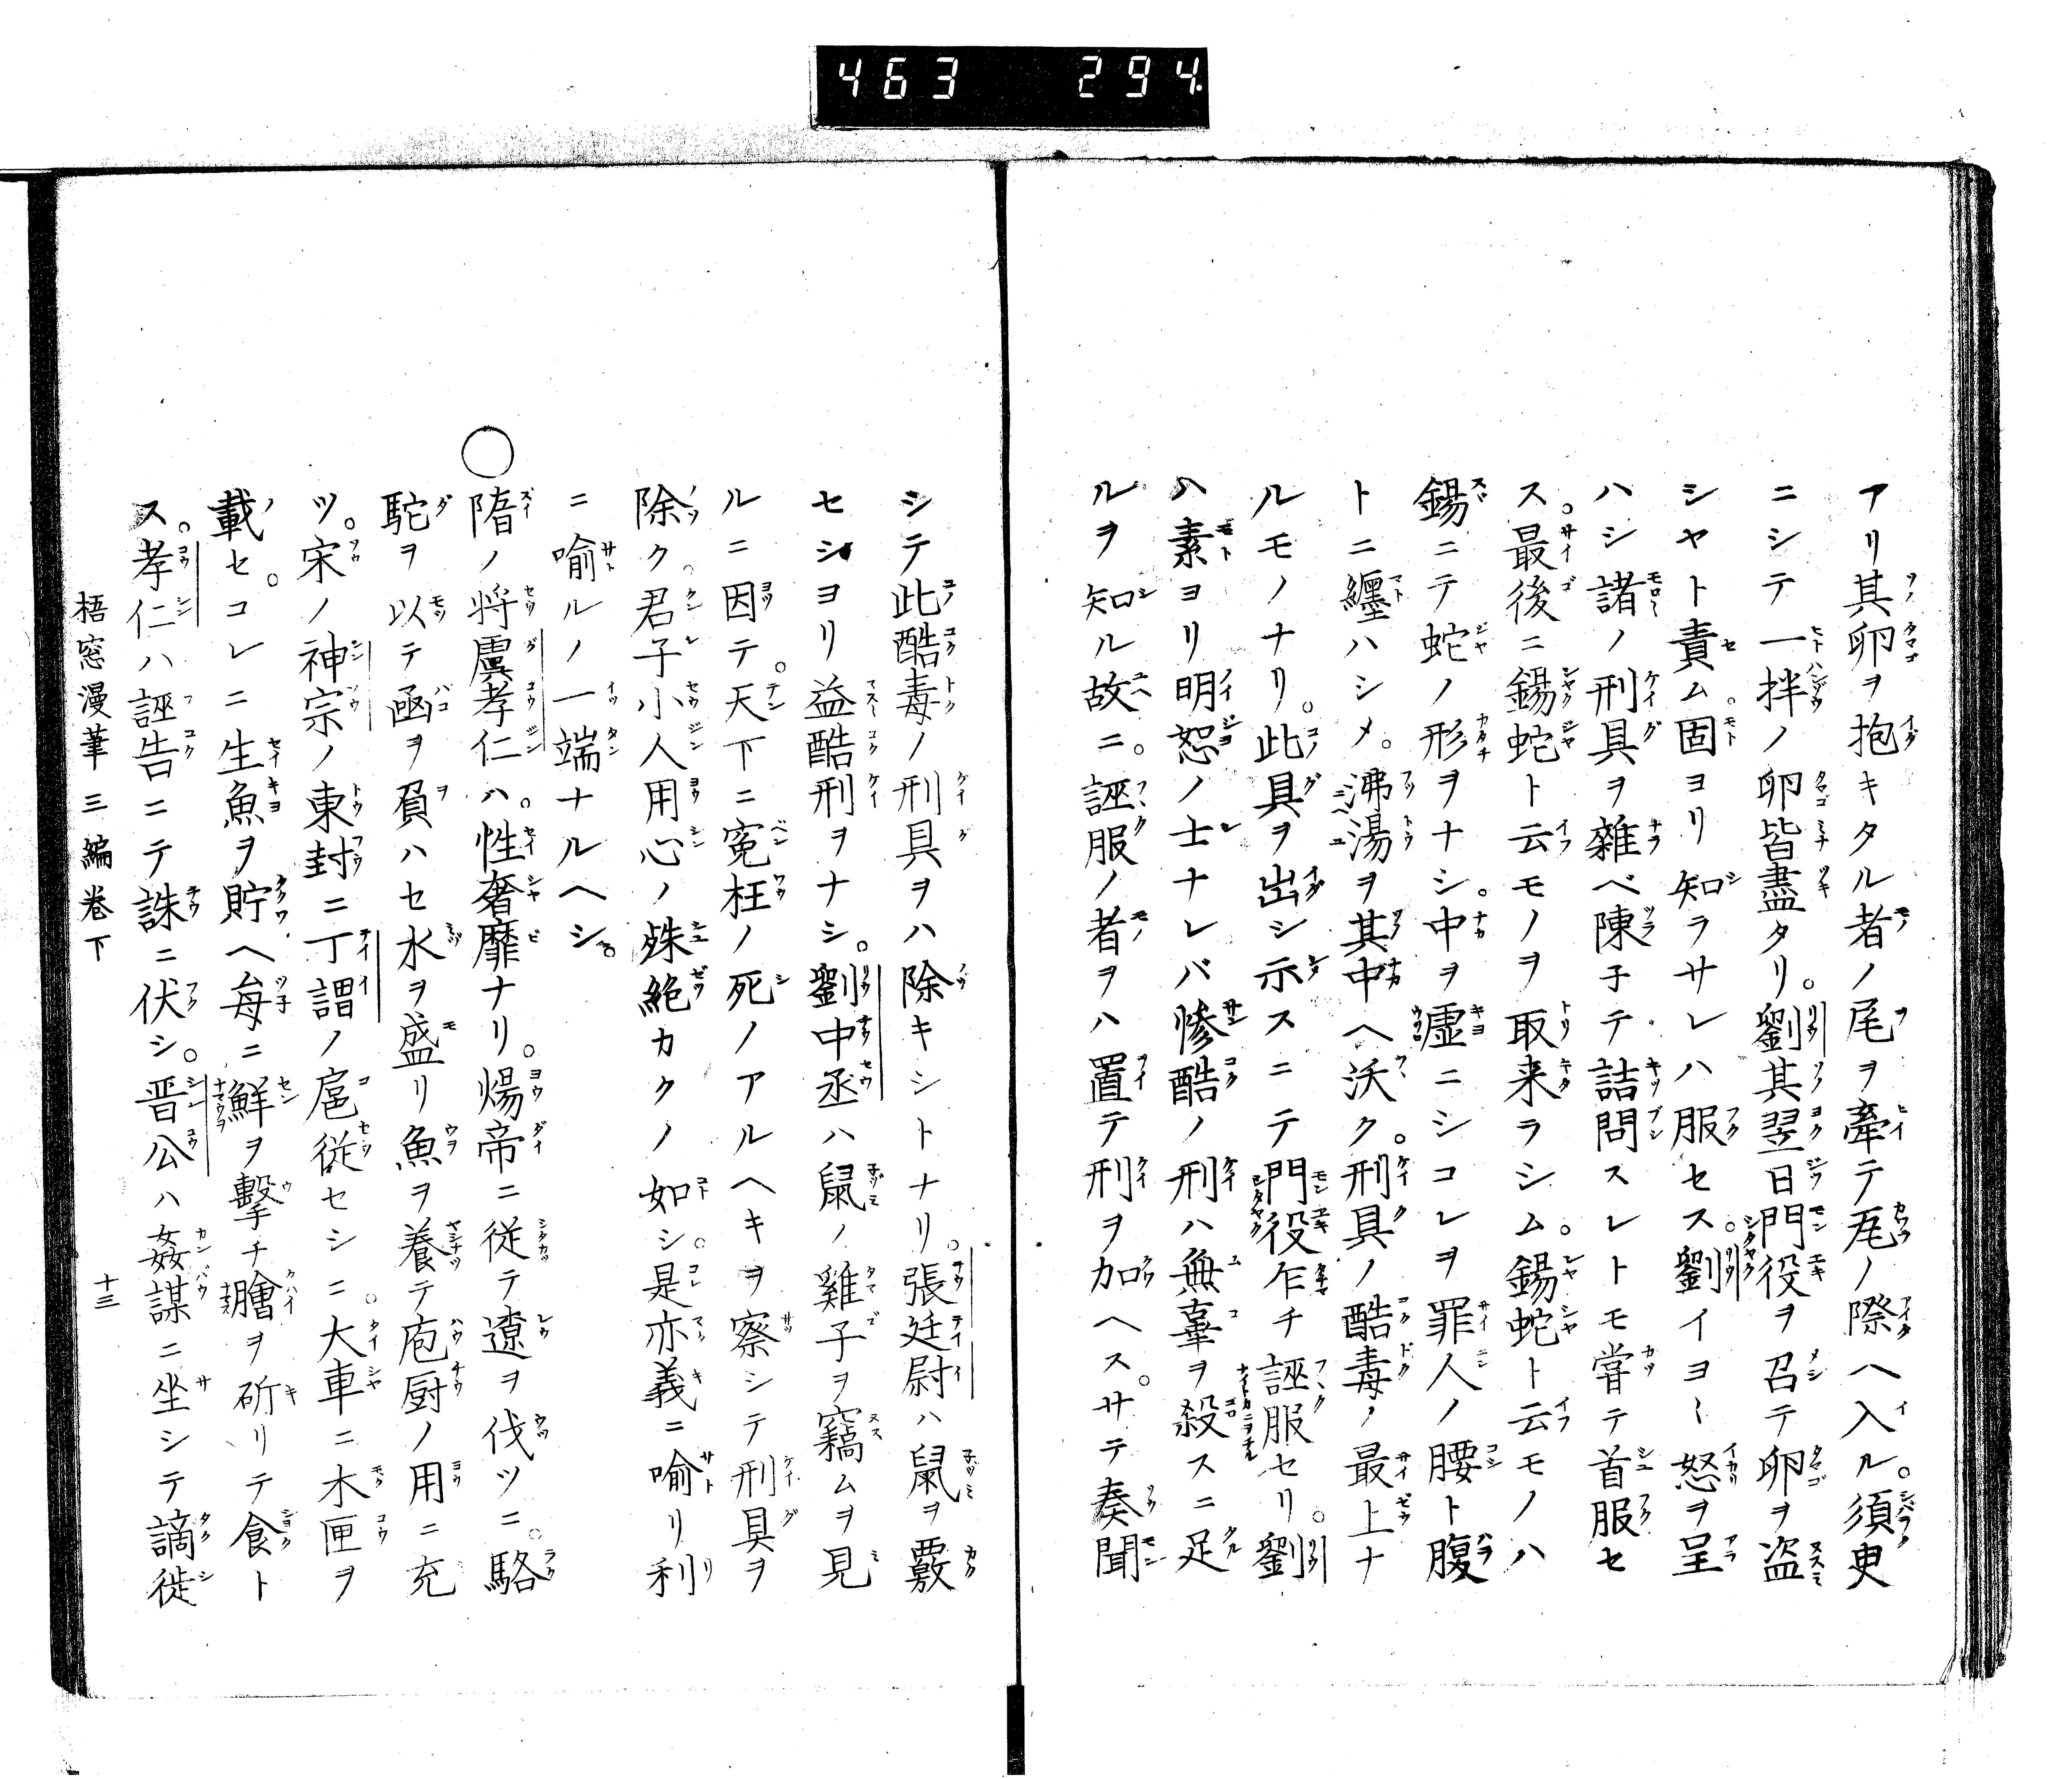 463 294
アリ其卵ヲ抱キタル者ノ尾ヲ牽テ瓦ノ際ヘ入ル。須臾
ニシテ一拌ノ卵皆盡タリ。劉其翌日門役ヲ召テ卵ヲ盗
シヤト責ム。固ヨリ知ラサレハ服セス。劉イヨ〱怒ヲ呈
ハシ諸ノ刑具ヲ雜ベ陳子テ詰問スレトモ甞テ首服セ
ス。最後ニ錫蛇ト云モノヲ取来ラシム。錫蛇ト云モノハ
錫ニテ蛇ノ形ヲナシ。中ヲ虚ニシコレヲ罪人ノ腰ト腹
トニ纏ハシメ。沸湯ヲ其中ヘ沃ク。刑具ノ酷毒ノ最上ナ
ルモノナリ。此具ヲ出シ示スニテ門役乍チ誣服セリ。劉
ハ素ヨリ明恕ノ士ナレバ惨酷ノ刑ハ無辜ヲ殺スニ足
ルヲ知ル故ニ。誣服ノ者ヲハ置テ刑ヲ加ヘス。サテ奏聞
シテ此酷毒ノ刑具ヲハ除キシトナリ。張廷尉ハ鼠ヲ覈
セシヨリ益酷刑ヲナシ。劉中丞ハ鼠ノ雞子ヲ竊ムヲ見
ルニ因テ。天下ニ寃枉ノ死ノアルヘキヲ察シテ刑具ヲ
除ク。君子小人用心ノ殊絶カクノ如シ。是亦義ニ喩リ利
ニ喩ルノ一端ナルヘシ。
○隋ノ将虞孝仁ハ。性奢靡ナリ。煬帝ニ従テ遼ヲ伐ツニ。駱
駝ヲ以テ凾ヲ負ハセ水ヲ盛リ魚ヲ養テ庖厨ノ用ニ充
ツ。宋ノ神宗ノ東封ニ丁謂ノ扈従セシニ。大車ニ木匣ヲ
載セ。コレニ生魚ヲ貯ヘ毎ニ鮮ヲ撃チ膾ヲ斫リテ食ト
ス。孝仁ハ誣告ニテ誅ニ伏シ。晋公ハ姦謀ニ坐シテ謫徙
梧窓漫筆三編巻下 十三